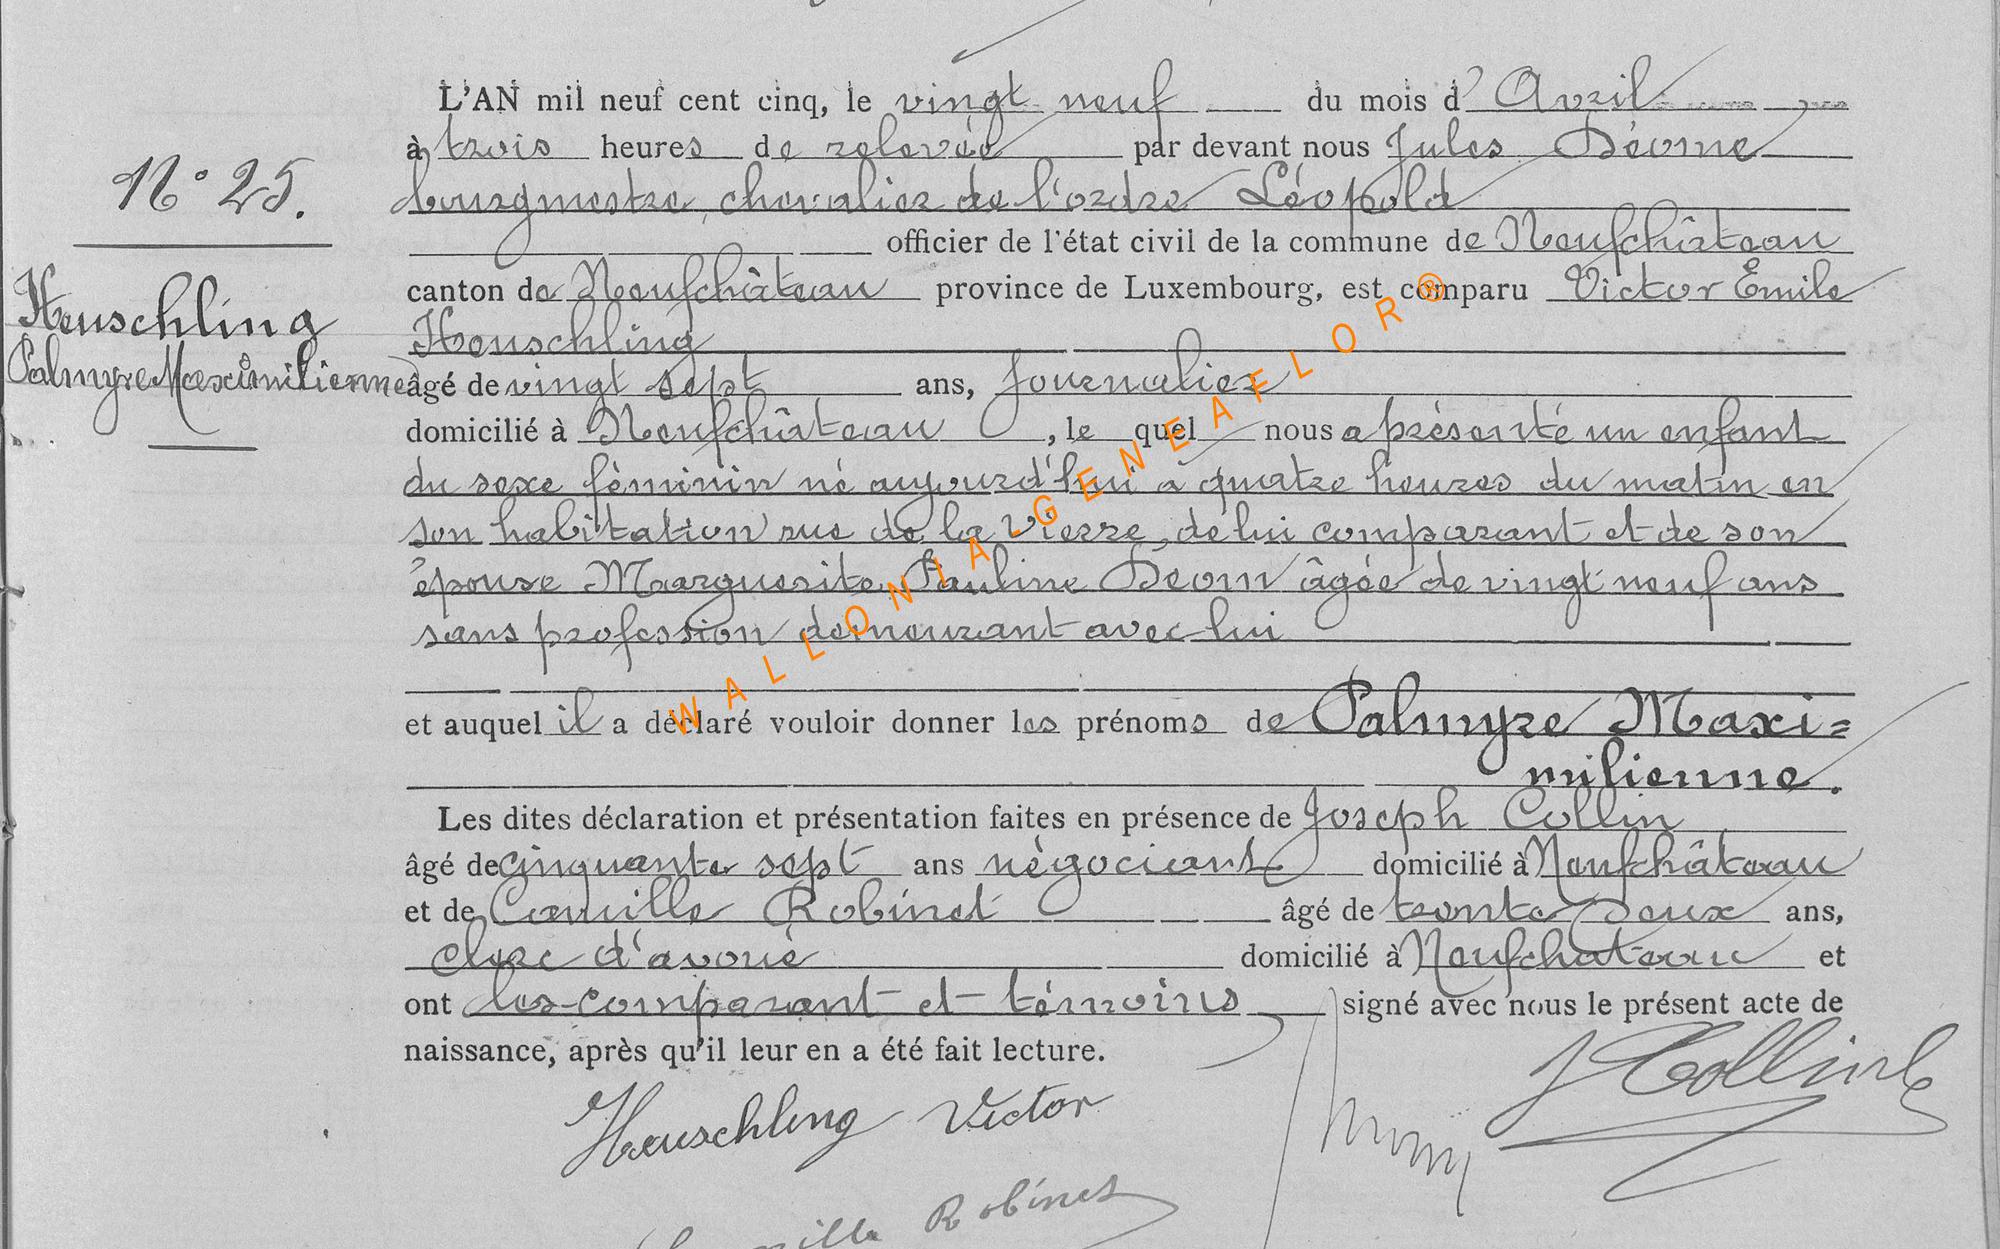 L'AN mil neuf cent cinq, le vingt neuf du mois d'Avril
à trois heures de relevée par devant nous Jules Déome
bourgmestre, chevalier de l'ordre Léopold
officier de l'état civil de la commune de Neufchâteau
canton de Neufchâteau province de Luxembourg, est comparu Victor Emile
Heuschling
âgé de vingt sept ans, journalier
domicilié à Neufchâteau, le quel nous a présenté un enfant
du sexe féminin né aujourd'hui à quatre heures du matin en
son habitation rue de la Vierre, de lui comparant et de son
épouse Marguerite Pauline Deom âgée de vingt neuf ans
sans profession demeurant avec lui
et auquel il a déclaré vouloir donner les prénoms de Palmyre Maxi=
milienne.
Les dites déclaration et présentation faites en présence de Joseph Collin
âgé de cinquante sept ans négociant domicilié à Neufchâteau
et de Camille Robinet âgé de trente deux ans,
clerc d'avoué domicilié à Neufchateau et
ont les comparant et témoins signé avec nous le présent acte de
naissance, après qu'il leur en a été fait lecture.
N° 25.
Heuschling
Palmyre Maximilienne
Heuschling Victor
J Collin
Camille Robinet
WALLONIA GENEAFLOR®